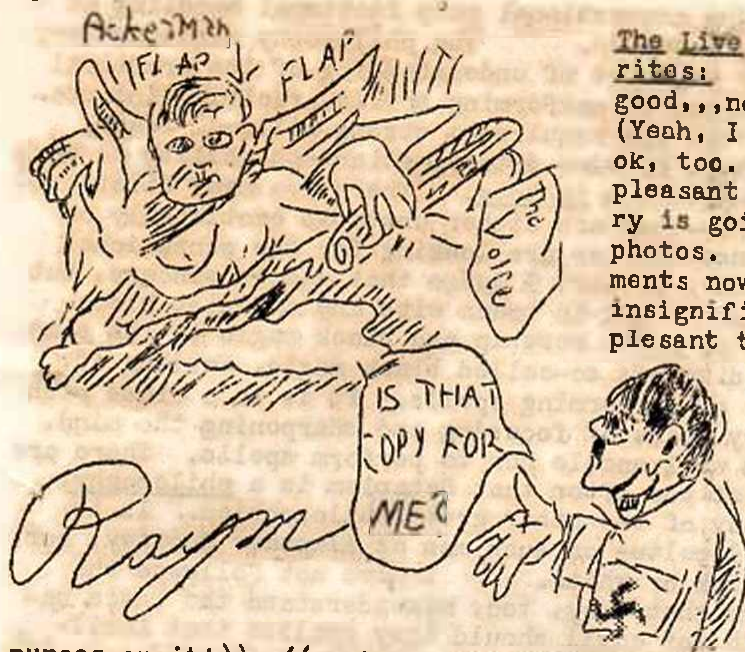 Ackerman
FLAP FLAP
The
Voice
IS THAT
COPY FOR
ME?
Raym
The Live
rites:
good,,,ne
(Yeah, I
ok, too.
pleasant
ry is goi
photos.
ments now
insignifi
plesant t